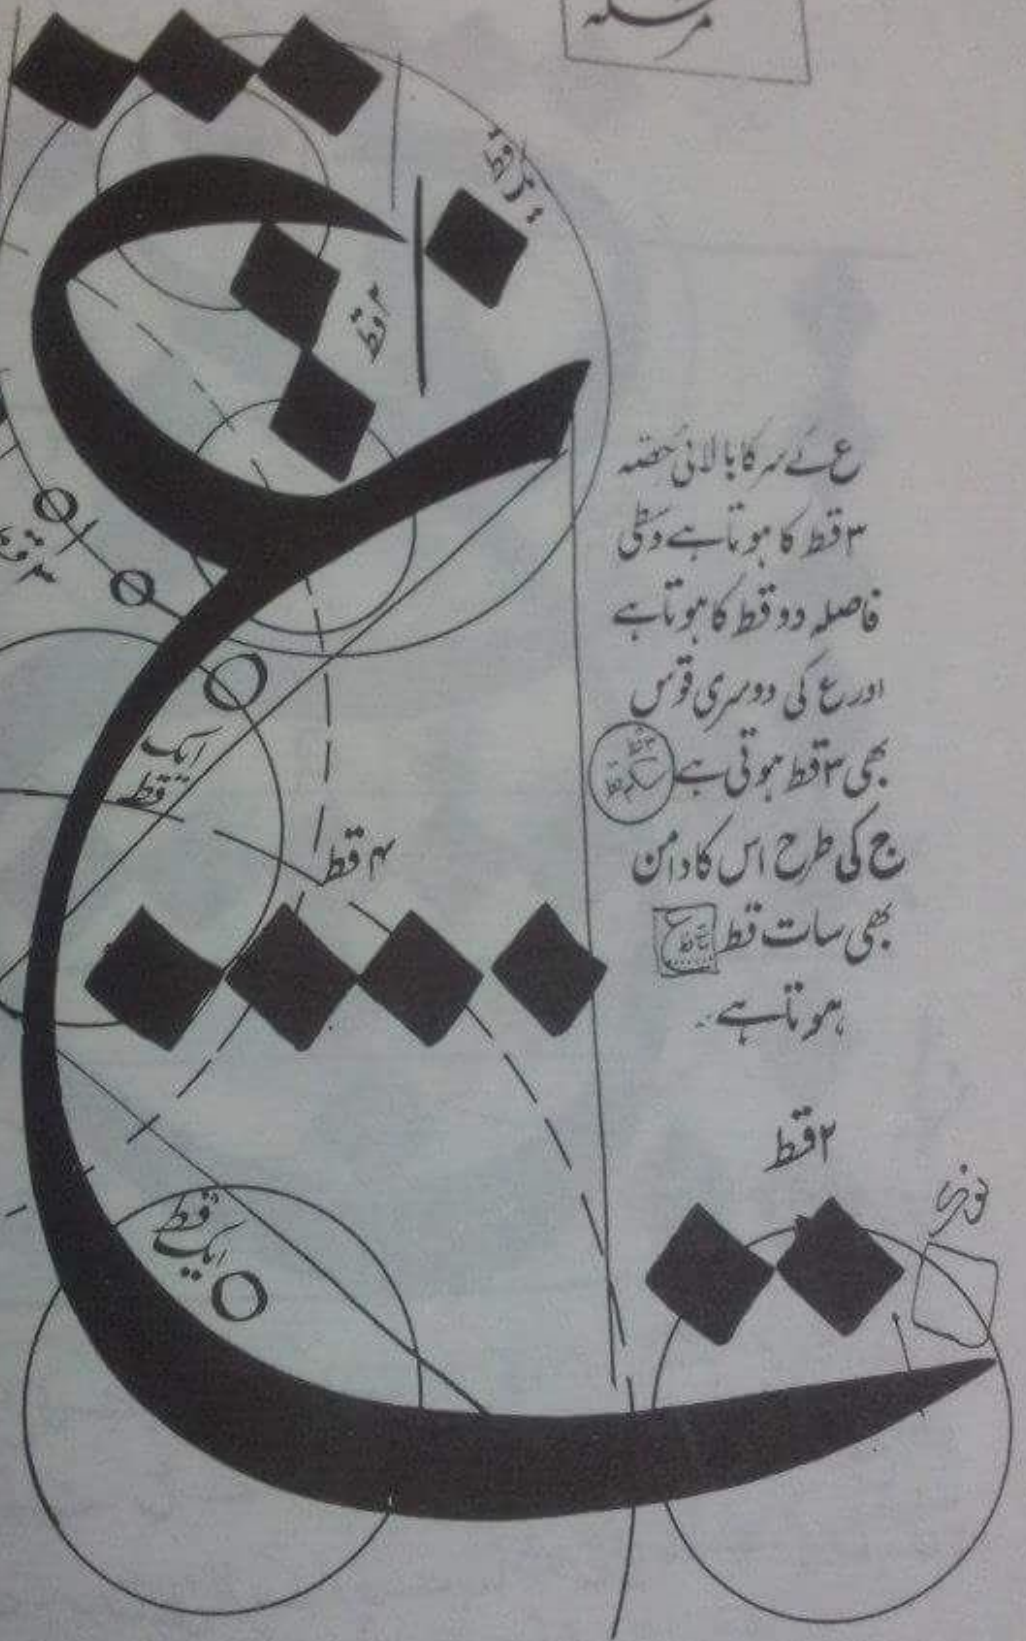 مرسلہ
۲ قط
ع کے سر کا بالائی حصّہ
۳ قط کا ہوتا ہے وسطی
فاصلہ دو قط کا ہوتا ہے
اور ع کی دوسری قوس
بھی ۳ قط ہوتی ہے
ج کی طرح اس کا دامن
بھی سات قط
ہوتا ہے
ایک
قط
۴ قط
۲ قط
ایک قط